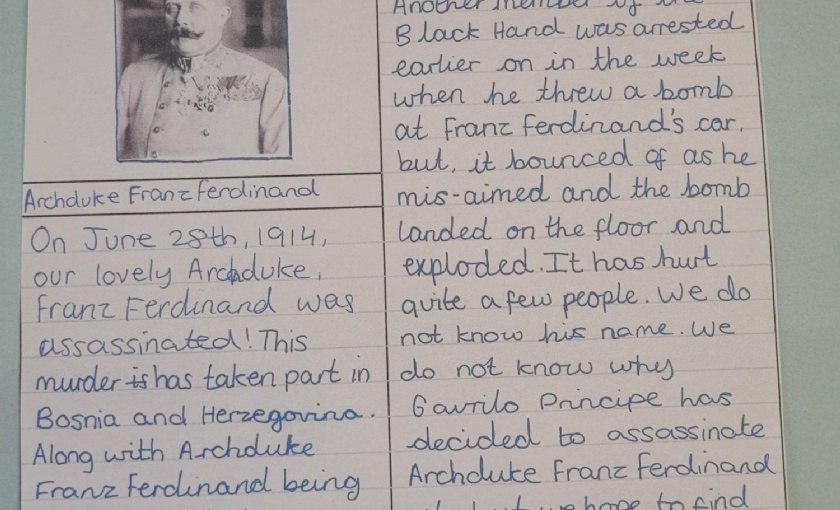 Archduke Franz Ferdinand
On June 28th, 1914,
our lovely Archduke,
Franz Ferdinand was
assassinated! This
murder is has taken part in
Bosnia and Herzegovina.
Along with Archduke
Franz Ferdinand being
Another member of the
Black Hand was arrested
earlier on in the week
when he threw a bomb
at Franz Ferdinand's car,
but, it bounced of as he
mis-aimed and the bomb
landed on the floor and
exploded. It has hurt
quite a few people. We do
not know his name. We
do not know why
Gavrilo Principe has
decided to assassinate
Archduke Franz Ferdinand
we hope to find